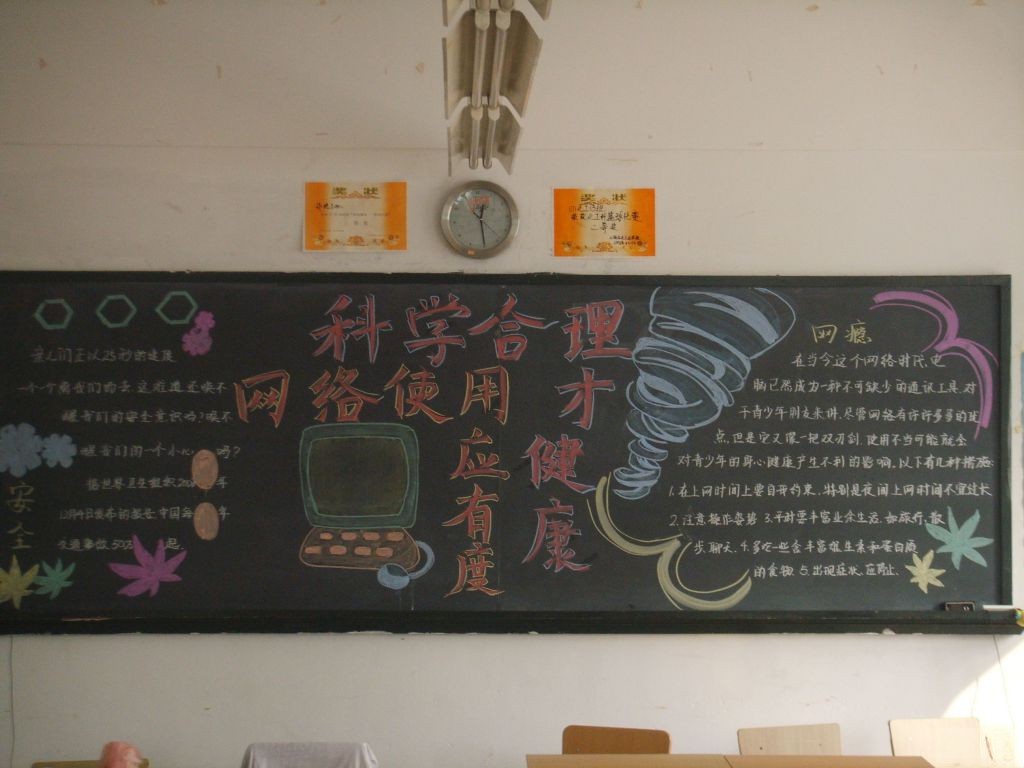 奖状
奖状
二等奖
科学合理
网络使用
才健康
应有度
安全
亲人们正以25秒的速度
一个一个离我们而去,这难道还唤不
醒我们的安全意识吗?唤不
醒我们的一个小心 吗?
据世界卫生组织200 年
12月4日发布的报告 中国每 年
交通事故50万 起.
网瘾
在当今这个网络时代,电
脑已然成为一种不可缺少的通讯工具.对
于青少年朋友来讲.尽管网络有许许多多的优
点.但是它又像一把双刃剑.使用不当可能就会
对青少年的身心健康产生不利的影响.以下有几种措施:
1.在上网时间上要自我约束.特别是夜间上网时间不宜过长
2.注意操作姿势 3.平时要丰富业余生活.如旅行.散
步.聊天. 4.多吃一些含丰富维生素和蛋白质
的食物. 5.出现症状.应停止.